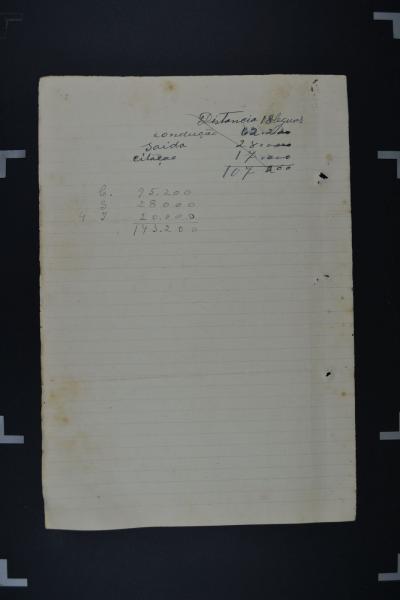 Distancia 18 leguas
condução 62.200
Saida 28.000
citação 17.000
107.200
C. 95.200
S 28000
4 J 20.000
143.200